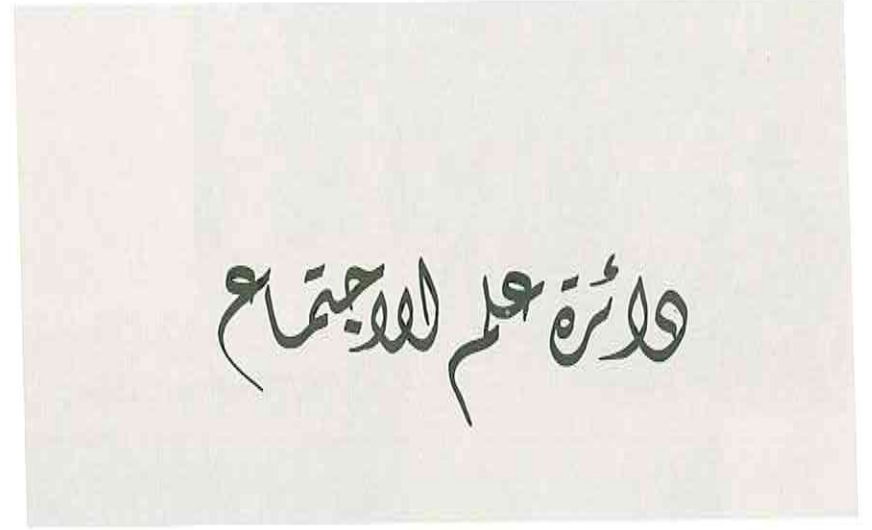 دائرة علم الاجتماع